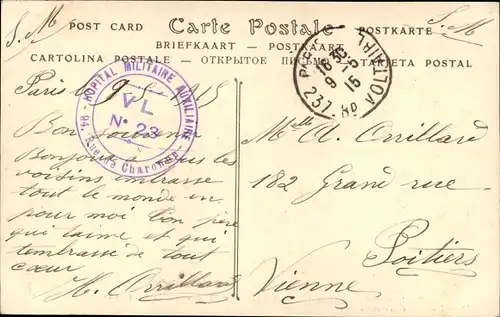 S. M
S. M.
POST CARD
Carte Postale
POSTKARTE
BRIEFKAART — POSTKAART
CARTOLINA POSTALE — ОТКРЫТОЕ ПИСЬМО — TARJETA POSTAL
HOPITAL MILITAIRE AUXILIAIRE
V L
N° 23
94. Rue de Charonne
18 30
9 - 5
15
237. RD
VOLTAIRE
Paris le 9 5 1915
Bon souvenir
Bonjour à tous les
voisins embrasse
tout le monde en
pour moi ton père
qui t'aime et qui
t'embrasse de tout
cœur
H. Orrillard
Mlle A. Orrillard
182 Grand rue
Poitiers
Vienne